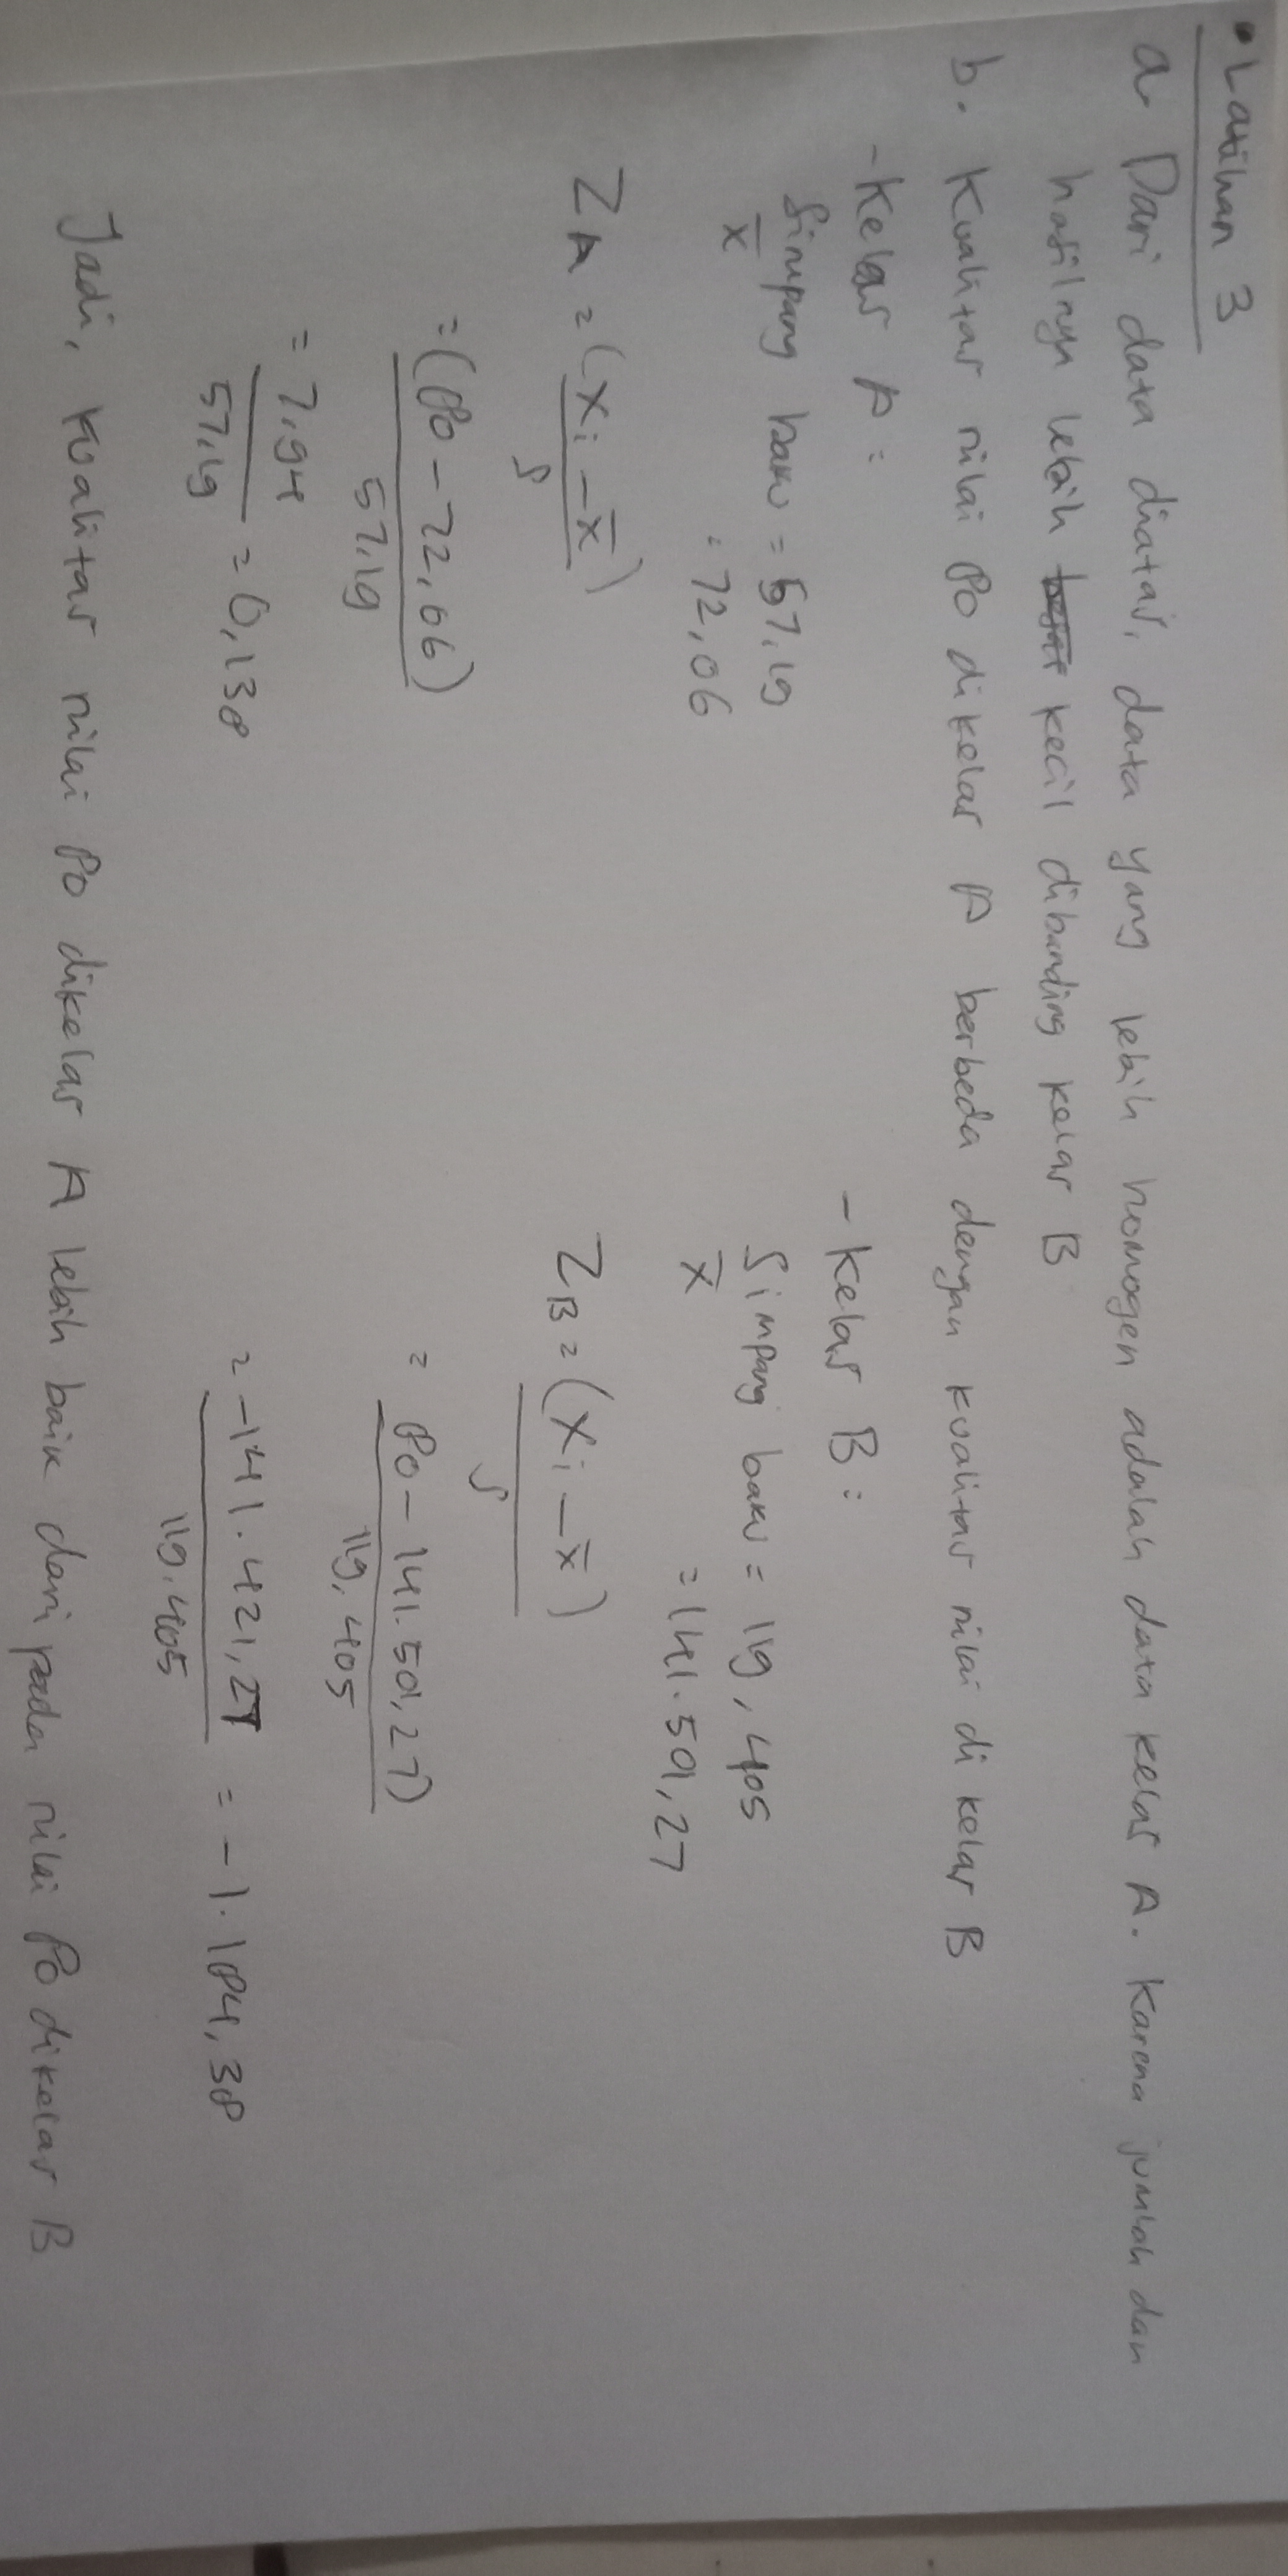 • Latihan 3
a Dari data diatas, data yang lebih homogen adalah data kelas A. Karena jumlah dan
hasilnya lebih kecil dibanding kelas B
b. Kualitas nilai 80 di kelas A berbeda dengan kualitas nilai di kelas B
- Kelas A :
Simpang baku = 57,19
x̄ = 72,06
Z_A = (Xi - x̄)
S
= (80 - 72,06)
57,19
= 7,94
57,19 = 0,138
- Kelas B :
Simpang baku = 119,405
x̄ = 141.501,27
Z_B = (Xi - x̄)
S
= 80 - 141.501,27)
119,405
= -141.421,27
119.405 = -1.184,38
Jadi, kualitas nilai 80 dikelas A lebih baik dari pada nilai 80 dikelas B